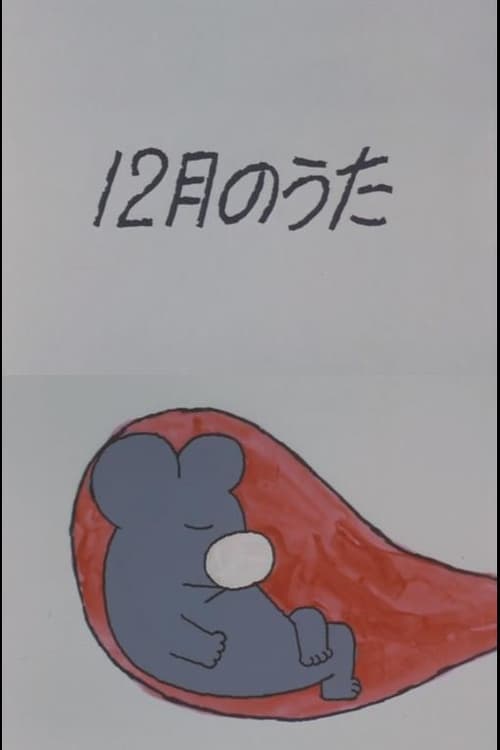 12月のうた